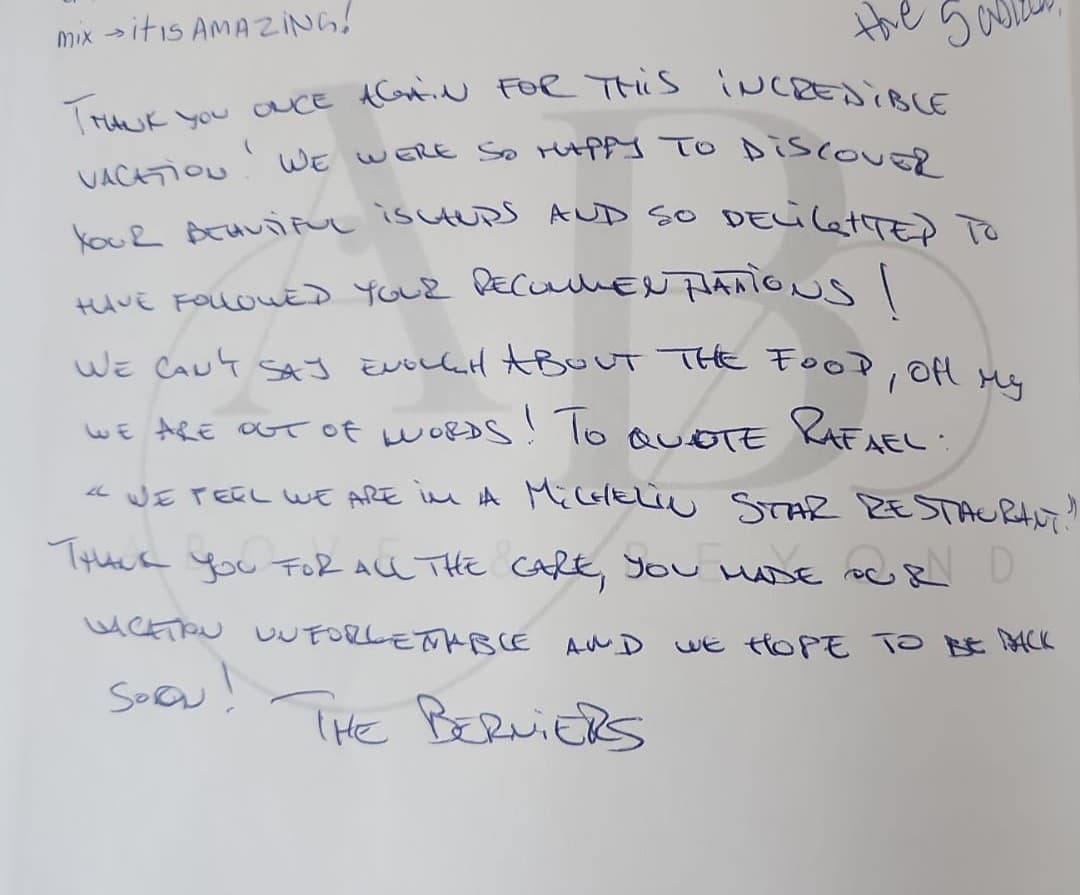 mix → it is AMAZING!
the
THANK YOU ONCE AGAIN FOR THIS INCREDIBLE
VACATION! WE WERE SO HAPPY TO DISCOVER
YOUR BEAUTIFUL ISLANDS AND SO DELIGHTED TO
HAVE FOLLOWED YOUR RECOMMENDATIONS!
WE CAN'T SAY ENOUGH ABOUT THE FOOD, OH MY
WE ARE OUT OF WORDS! TO QUOTE RAFAEL:
"WE FEEL WE ARE in A MICHELIN STAR RESTAURANT!"
THANK YOU FOR ALL THE CARE, YOU MADE OUR
VACATION UNFORGETTABLE AND WE HOPE TO BE BACK
SOON!
THE BERNIERS
AB
ABOVE & BEYOND